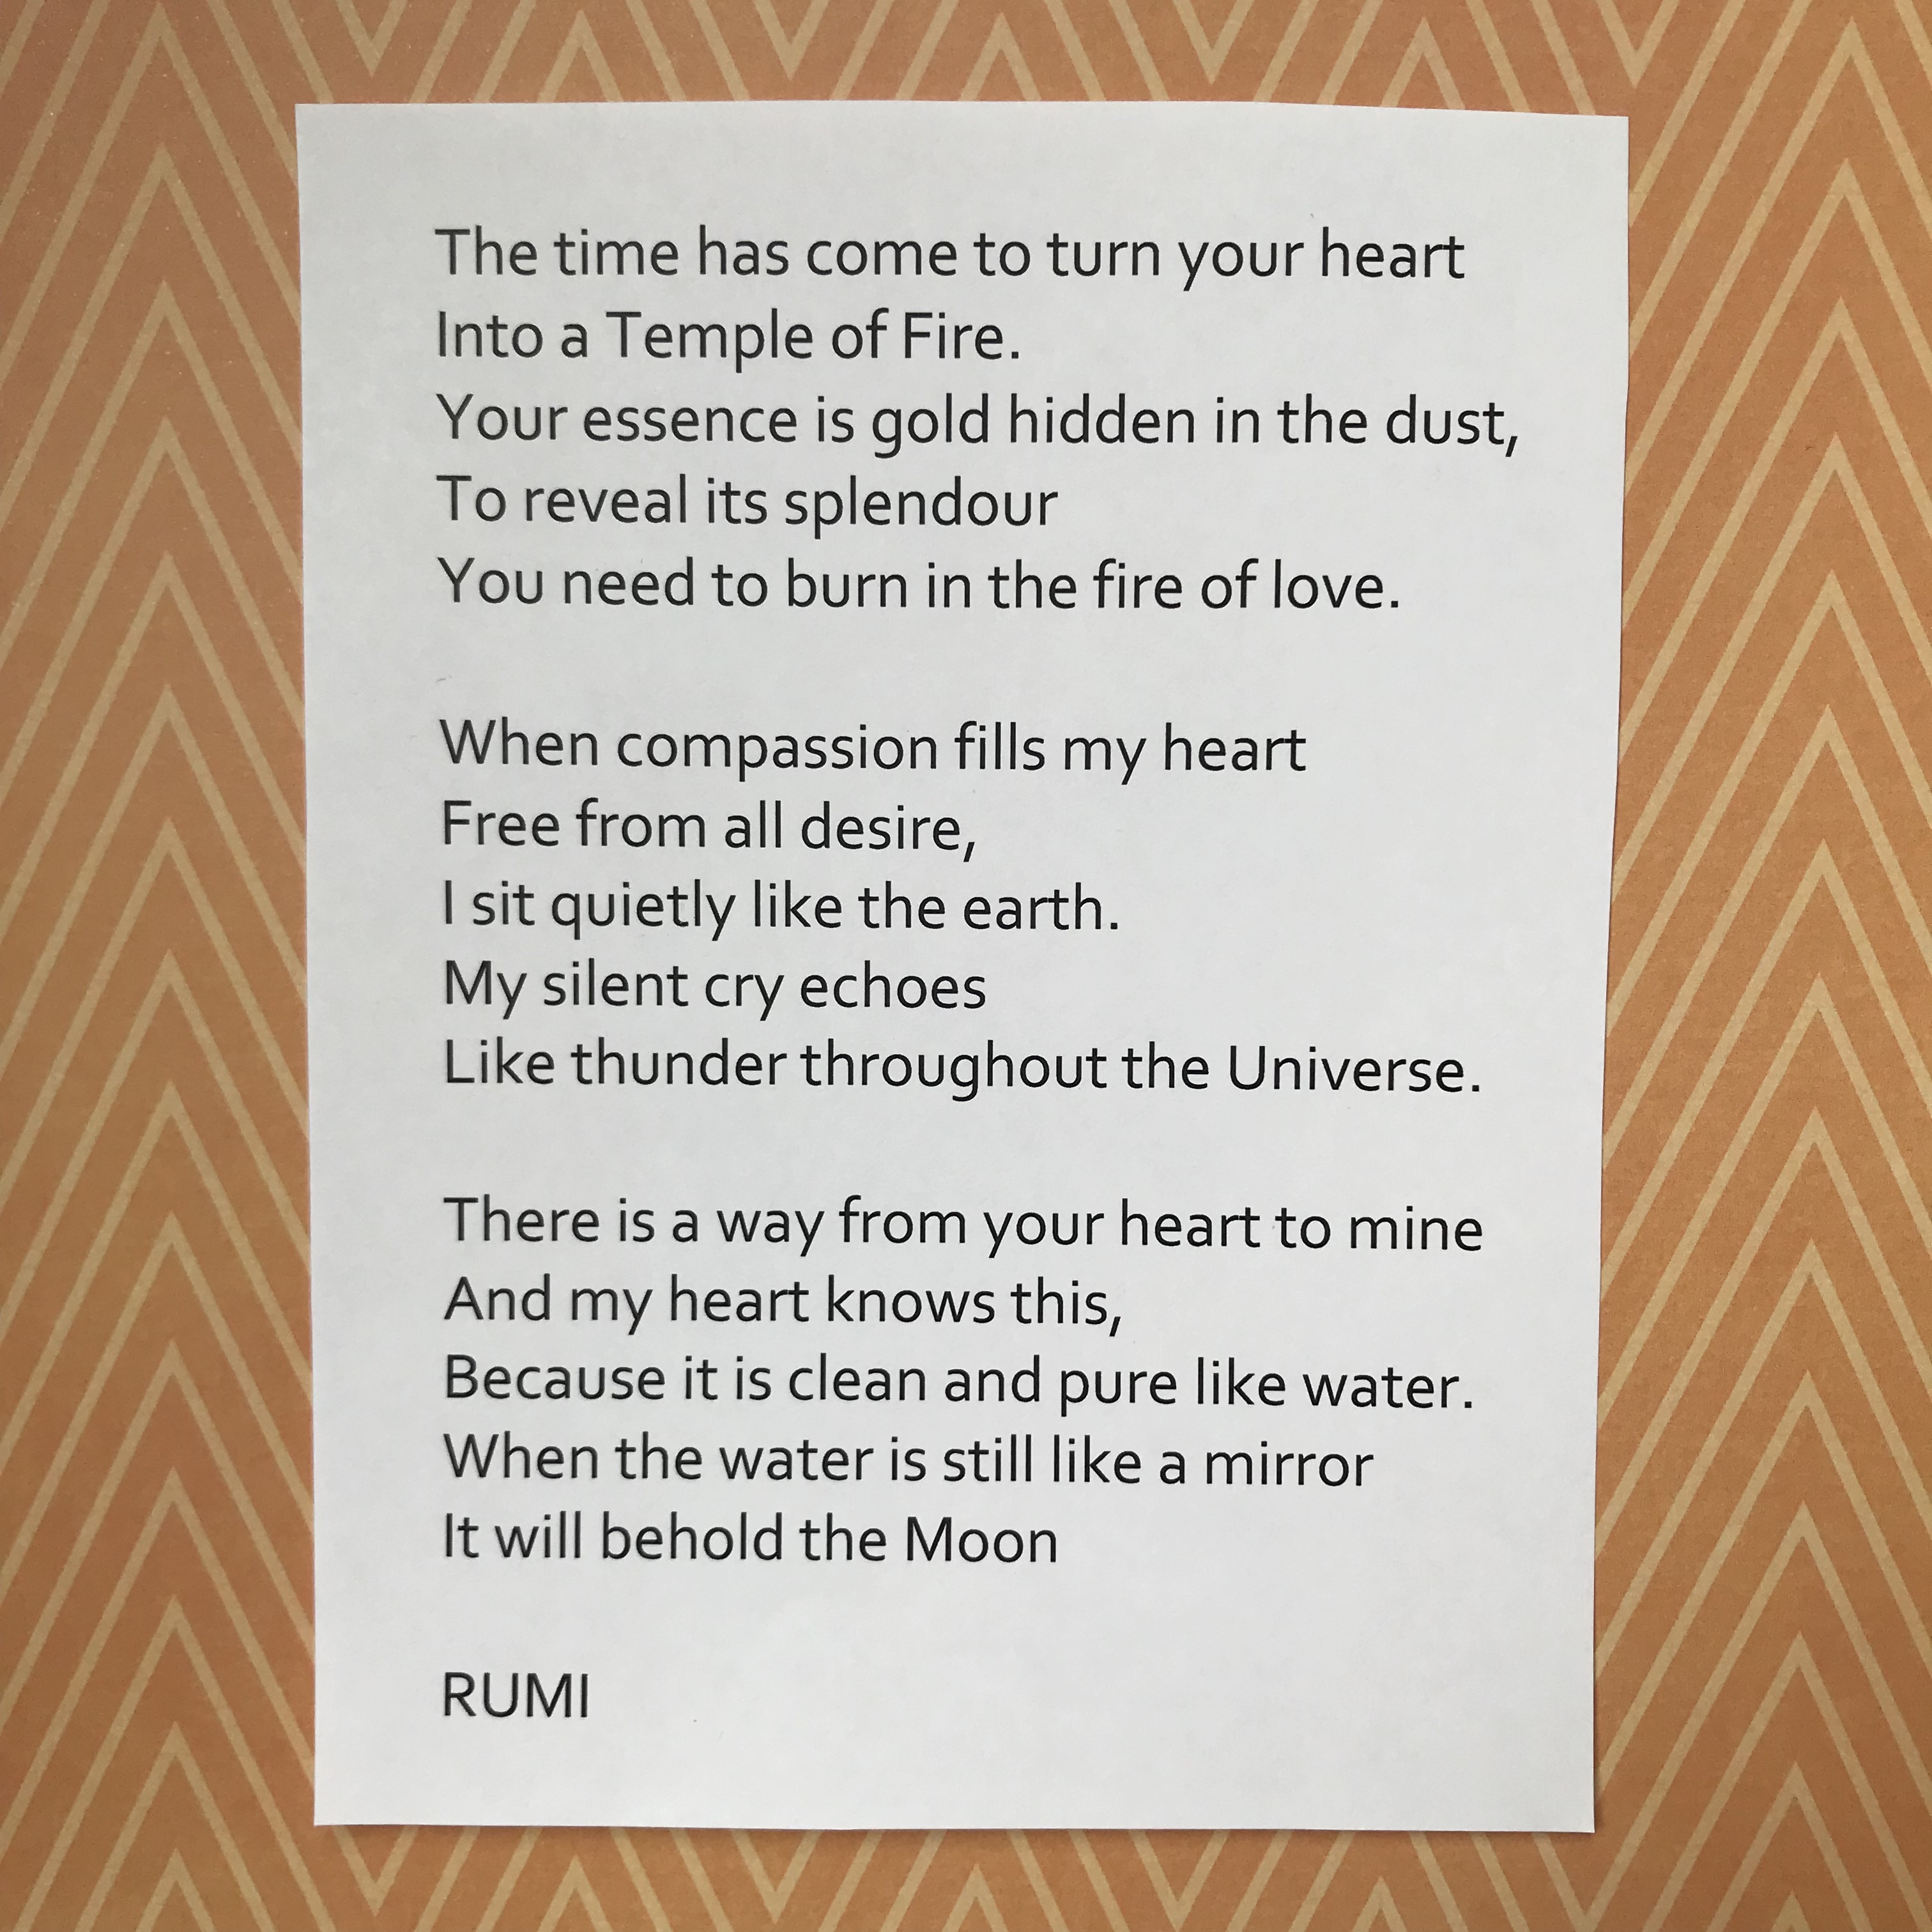 The time has come to turn your heart
Into a Temple of Fire.
Your essence is gold hidden in the dust,
To reveal its splendour
You need to burn in the fire of love.
When compassion fills my heart
Free from all desire,
I sit quietly like the earth.
My silent cry echoes
Like thunder throughout the Universe.
There is a way from your heart to mine
And my heart knows this,
Because it is clean and pure like water.
When the water is still like a mirror
It will behold the Moon
RUMI